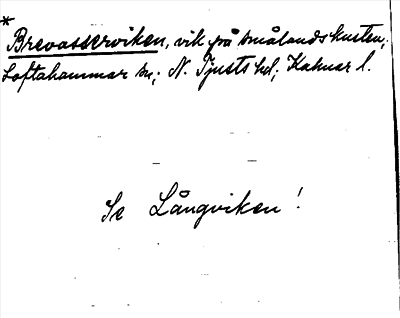 *
Brevasserviken, vik på Smålandskusten;
Loftahammar sn; N. Tjusts hd; Kalmar l.
Se Långviken!